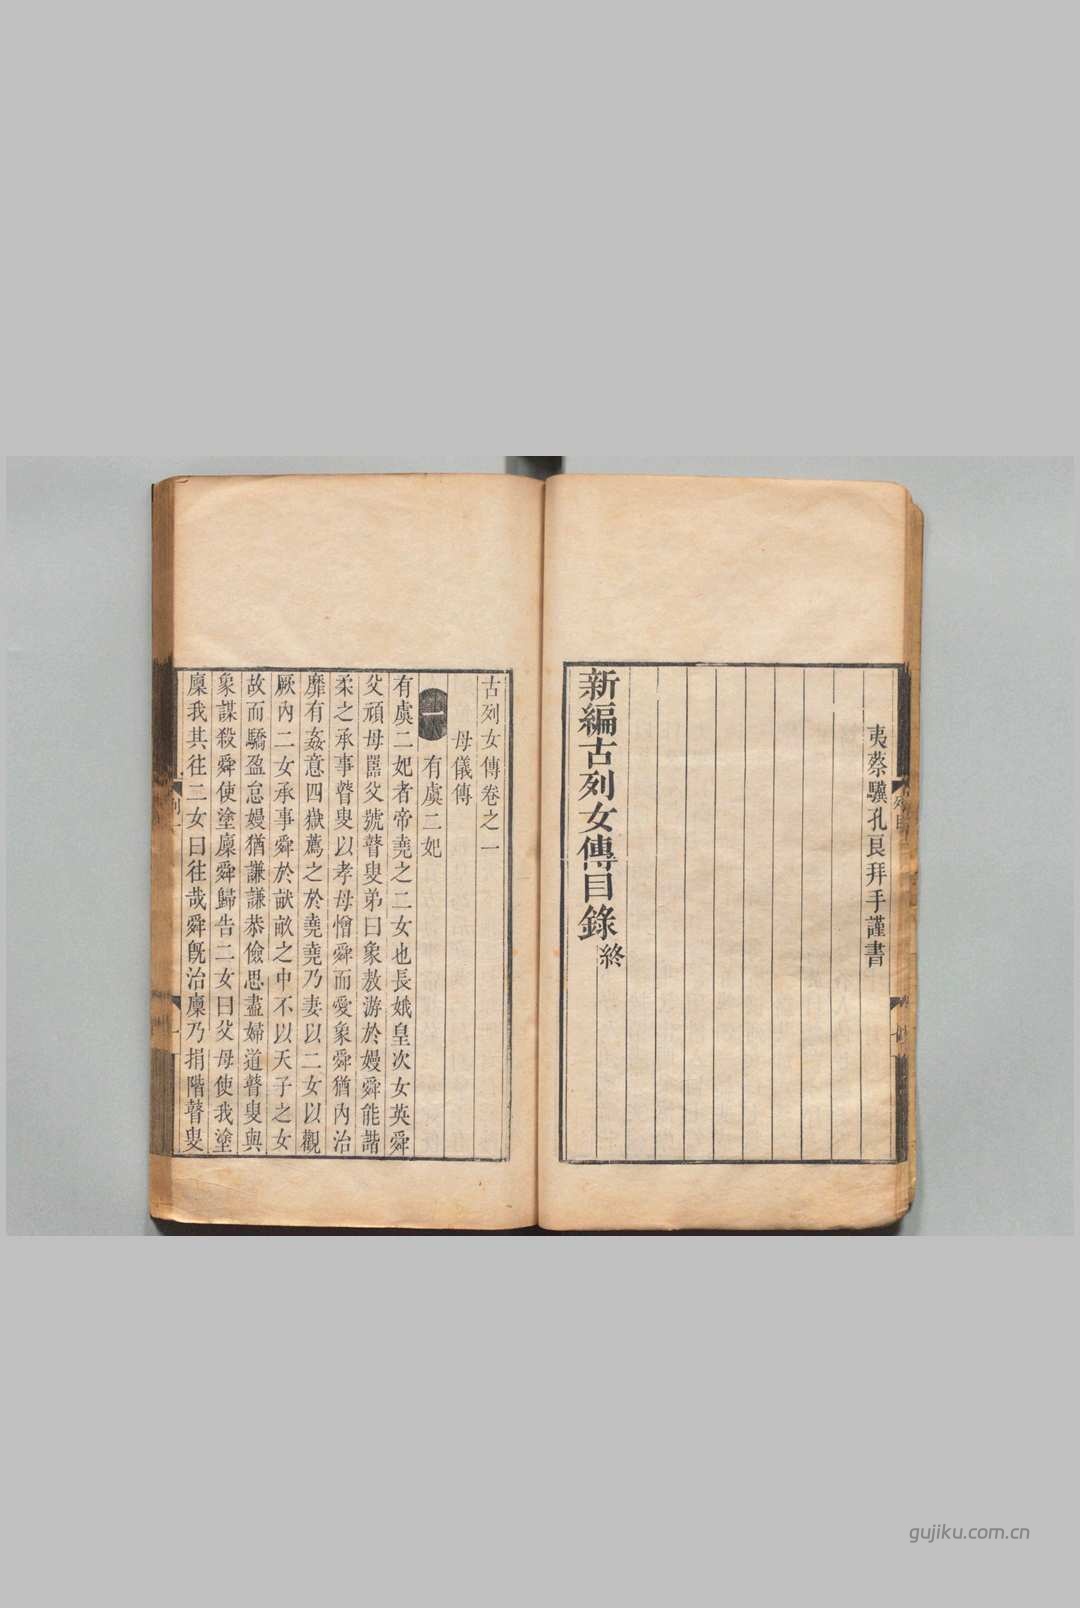 夷蔡驥孔良拜手謹書
新編古列女傳目錄終
古列女傳卷之一
母儀傳
一 有虞二妃
有虞二妃者帝堯之二女也長娥皇次女英舜
父頑母嚚父號瞽叟弟曰象敖游於嫚舜能諧
柔之承事瞽叟以孝母憎舜而愛象舜猶內治
靡有姦意四嶽薦之於堯堯乃妻以二女以觀
厥內二女承事舜於畎畝之中不以天子之女
故而驕盈怠嫚猶謙謙恭儉思盡婦道瞽叟與
象謀殺舜使塗廩舜歸告二女曰父母使我塗
廩我其往二女曰往哉舜旣治廩乃捐階瞽叟
gujiku.com.cn